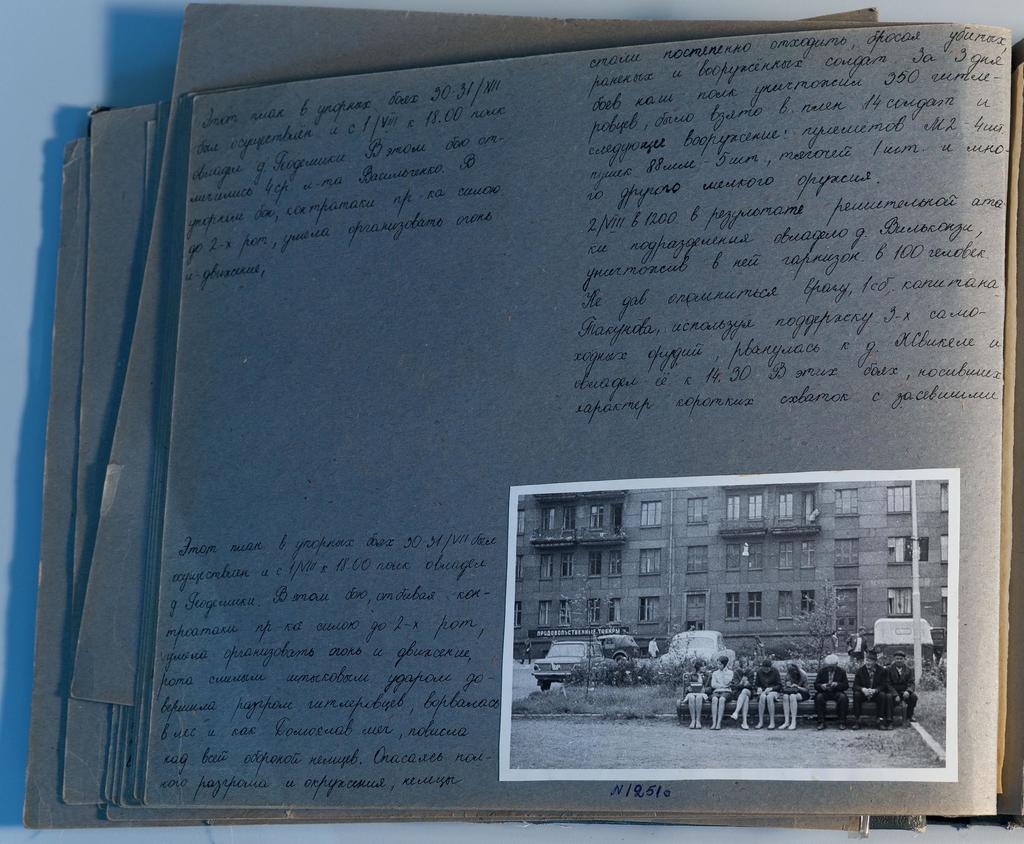 Этот план в упорных боях 30-31/VII
был осуществлен и с 1/VIII к 18.00 полк
овладел д. Геодемики В этом бою от-
личились 4 ср. л-та Васильченко. В
упорном бою, контратаки пр-ка силою
до 2-х рот, умела организовать огонь
и движение,
Этот план в упорных боях 30-31/VII был
осуществлен и с 1/VIII к 18.00 полк овладел
д. Геодемики. В этом бою, отбивая кон-
тратаки пр-ка силою до 2-х рот,
умела организовать огонь и движение,
рота смелым штыковым ударом до-
вершила разгром гитлеровцев, ворвалась
в лес и как Домоклав меч, повисла
над всей обороной немцев. Опасаясь пол-
ного разгрома и окружения, немцы
стали постепенно отходить, бросая убитых,
раненых и вооружённых солдат. За 3 дня
боев наш полк уничтожил 350 гитле-
ровцев, было взято в плен 14 солдат и
следующее вооружение: пулеметов М2 - 4 шт.
пушек 88 мм - 5 шт, тягачей 1 шт. и мно-
го другого мелкого оружия.
2/VIII в 1200 в результате решительной ата
ки подразделения овладело д. Вильконзи,
уничтожив в ней гарнизон в 100 человек
Не дав опомниться врагу, 1 сб. капитана
Такунова, используя поддержку 3-х само-
ходных орудий, рванулась к д. Жвикеле и
овладел её к 14.30 В этих боях, носивших
характер коротких схваток с засевшими
ПРОДОВОЛЬСТВЕННЫЕ ТОВАРЫ
N 1251о